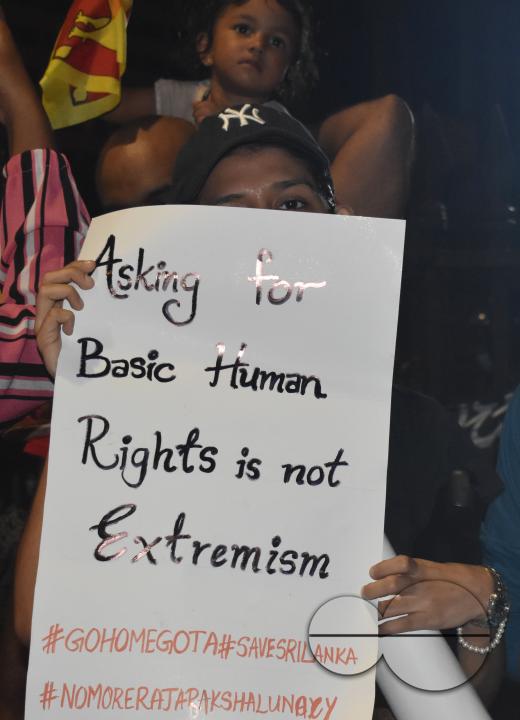 NY
Asking for
Basic Human
Rights is not
Extremism
#GOHOMEGOTA#SAVESRILANKA
#NOMORERAJAPAKSHALUNACY